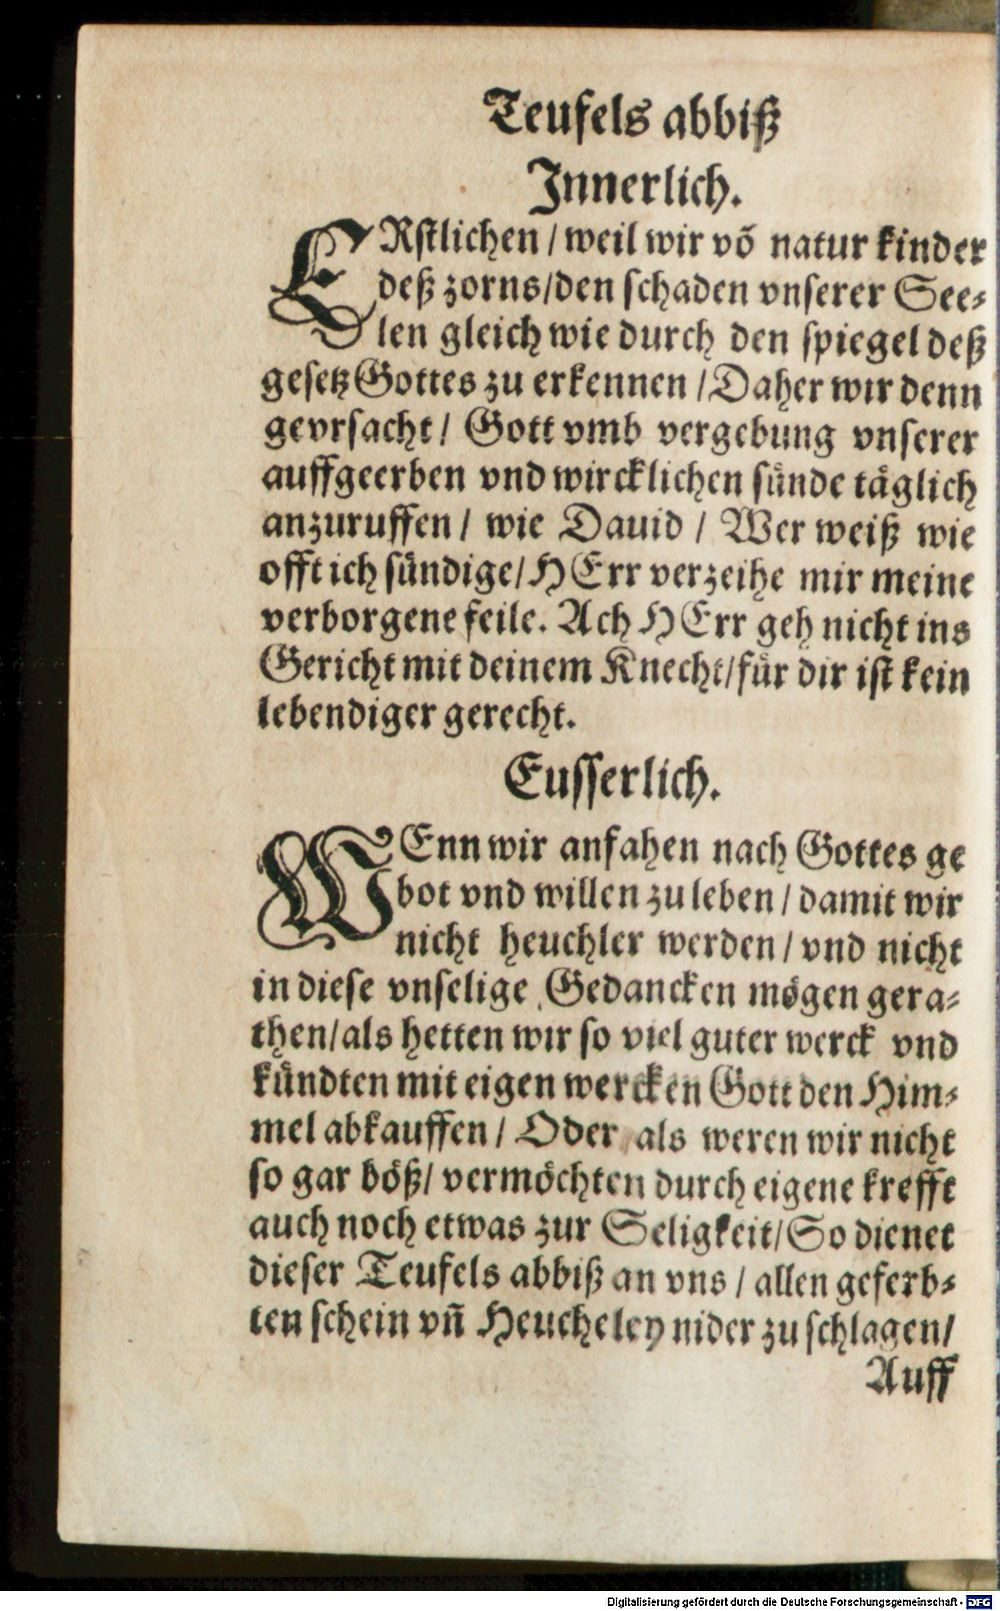 Teufels abbiß
Innerlich.
ERstlichen / weil wir võ natur kinder
deß zorns/den schaden vnserer See-
len gleich wie durch den spiegel deß
gesetz Gottes zu erkennen / Daher wir denn
gevrsacht / Gott vmb vergebung vnserer
auffgeerben vnd wircklichen sünde täglich
anzuruffen / wie Dauid / Wer weiß wie
offt ich sündige/ HErr verzeihe mir meine
verborgene feile. Ach HErr geh nicht ins
Gericht mit deinem Knecht/für dir ist kein
lebendiger gerecht.
Eusserlich.
WEnn wir anfahen nach Gottes ge
bot vnd willen zu leben / damit wir
nicht heuchler werden / vnd nicht
in diese vnselige Gedancken mögen gera-
then/als hetten wir so viel guter werck vnd
kündten mit eigen wercken Gott den Him-
mel abkauffen / Oder als weren wir nicht
so gar böß/ vermöchten durch eigene krefft
auch noch etwas zur Seligkeit/So dienet
dieser Teufels abbiß an vns / allen geferb-
ten schein vñ Heucheley nider zu schlagen/
Auff
Digitalisierung gefördert durch die Deutsche Forschungsgemeinschaft - DFG